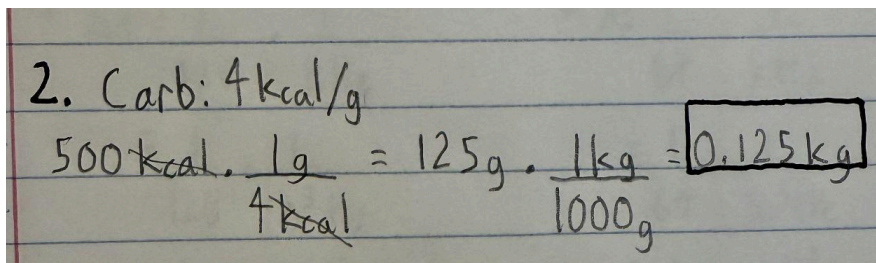 2. Carb: 4kcal/g
500kcal · 1g/4kcal = 125g · 1kg/1000g = 0.125kg